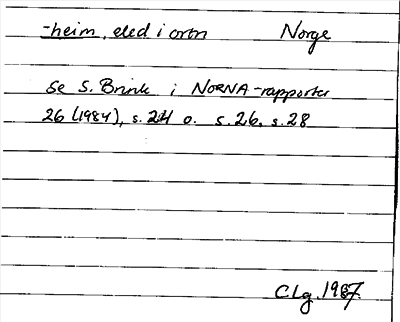 -heim, eled i ortn Norge
se S. Brink i NORNA-rapporter
26 (1984), s. 24 o. s. 26, s. 28
C Lg. 1987.